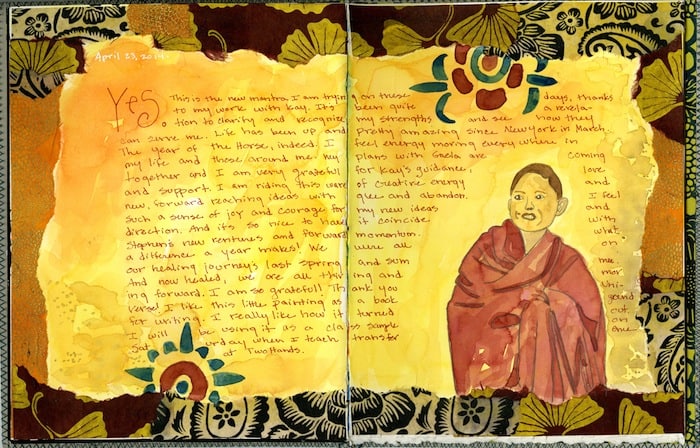 April 23, 2014
Yes. This is the new mantra I am trying on these days, thanks
to my work with Kay. Its been quite a revela-
tion to clarify and recognize my strengths and see how they
can serve me. Life has been up and pretty amazing since New York in March.
The year of the Horse, indeed. I feel energy moving every where in
my life and those around me. My plans with Gaela are coming
together and I am very grateful for Kay's guidance, love
and support. I am riding this wave of creative energy and
new, forward reaching ideas with glee and abandon. I feel
such a sense of joy and courage for my new ideas and
direction. And it's so nice to have it coincide with
Stephen's new ventures and forward momentum. What
a difference a year makes! We were all on
our healing journey's last spring and sum mer.
And now healed, we are all thriv ing and mov
ing forward. I am so grateful! Thank you Uni-
verse! I like this little painting as a back ground
for writing. I really like how it turned out.
I will be using it as a class sample on
Sat urday when I teach transfer one
at Two Hands.